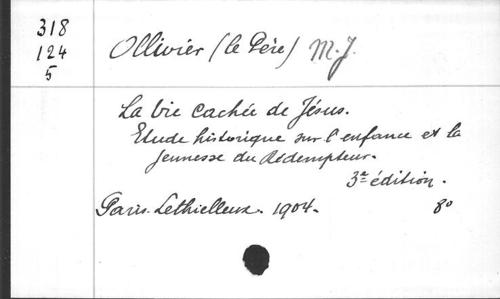 318
124
5
Ollivier (le Père) M. J.
La vie cachée de Jésus.
Etude historique sur l'enfance et la
jeunesse du Rédempteur.
3e édition.
Paris. Lethielleux. 1904. 8o